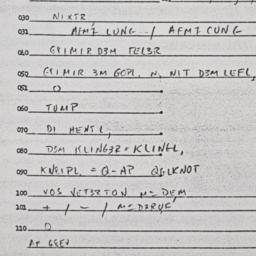 030 NIXTR,
031 AFM7 LUNG / AFM7 CUNG
040 GRIMIR D3M TEL3R
050 GRIMIR 3M GOPL, N, NIT D3M LEFL,
052 O
060 TUMP
070 DI HENTL,
080 D3M KLING3R = KLINGL,
090 KNRIPL, = Q-AP QGLKNOT
200 VOS VET3RTON M= DEM
201 + / - / M= D3RUF,
210 O
AP GEEN